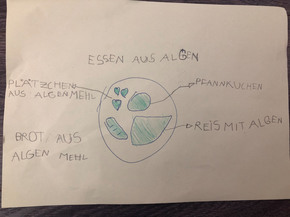 ESSEN AUS ALGEN
PLÄTZCHEN
AUS ALGENMEHL
PFANNKUCHEN
BROT AUS
ALGEN MEHL
REIS MIT ALGEN